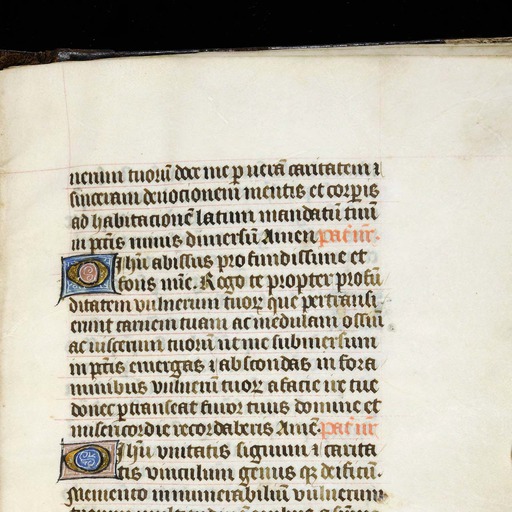 uerum tuorū doce me p uerā caritatem ⁊
sinceram deuocionem mentis et corpis
ad habitacionē latum mandatū tuū
in pctis nimis dimersū Amen Pat nr.
O Ihū abissus profundissime et
fons mīe. Rogo te propter profū
ditatem vulnerum tuoꝝ que pertransi
erunt carnem tuam ac medulam ossiū
ac uiscerum tuorū ut me submersum
in pctis emergas ⁊ abscondas in fora
minibus vulnerū tuoꝝ a facie ire tue
donec ptranseat furor tuus domine et
misericordie recordaberis Amē. Pat nr
O Ihū vnitatis signum ⁊ carita
tis vinculum
Memento innumerabiliū vulnerum